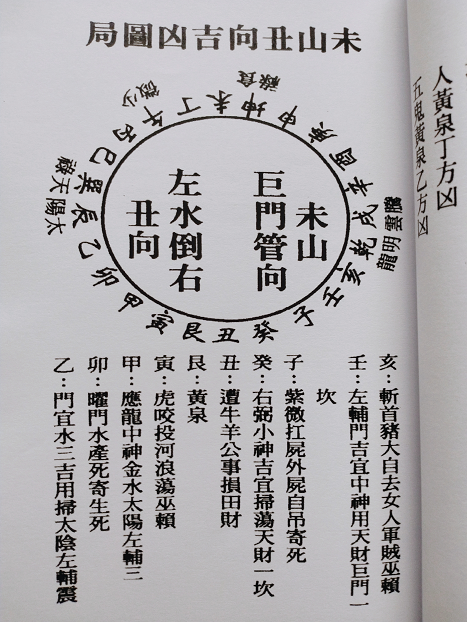 人黃泉丁方凶
五鬼黃泉乙方凶
未山丑向吉凶圖局
祿食
微少
午丁未坤申庚酉辛戌乾亥壬子癸丑艮寅甲卯乙辰巽巳丙
祿天
陽太
騰雲明龍
未山
巨門管向
左水倒右
丑向
亥：斬首豬大自去女人軍賊巫賴
壬：左輔門吉宜中神用天財巨門一
坎
子：紫微扛屍外屍自吊寄死
癸：右弼小神吉宜掃蕩天財一坎
丑：遭牛羊公事損田財
艮：黃泉
寅：虎咬投河浪蕩巫賴
甲：應龍中神金水太陽左輔三
卯：曜門水產死寄生死
乙：門宜水三吉用掃太陰左輔震